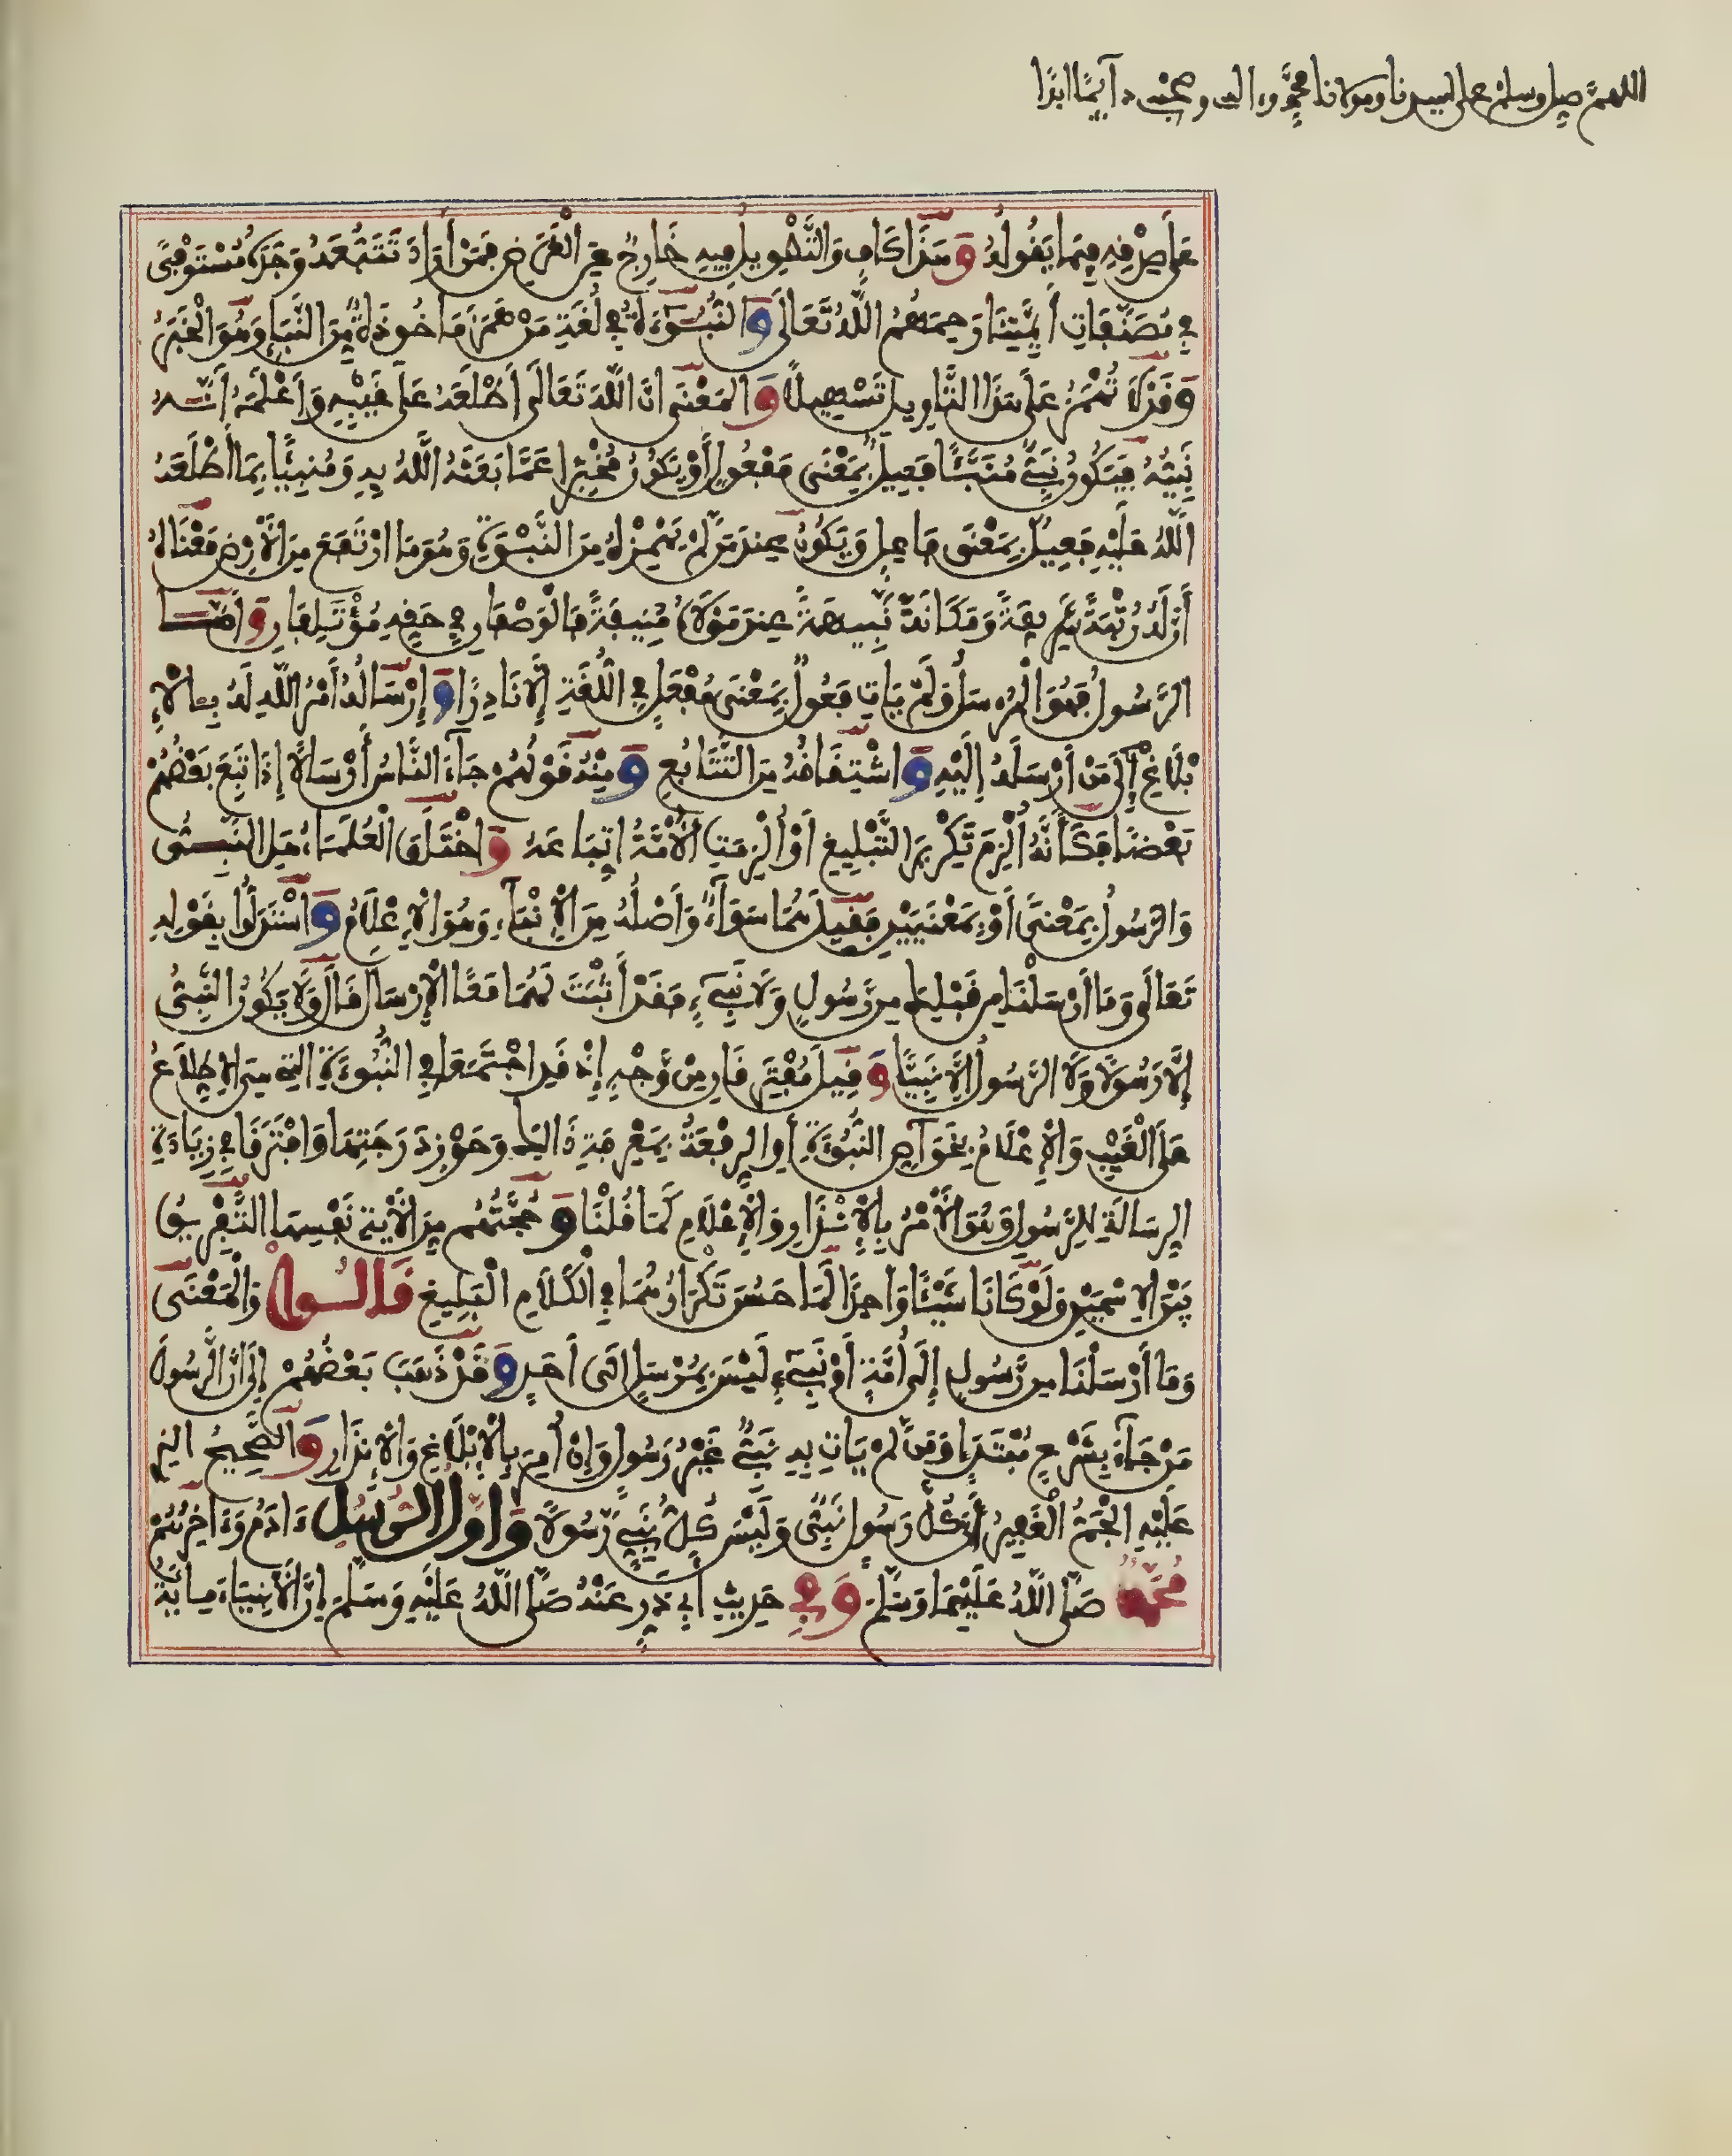 اللهم صل وسلم على سيدنا ومولانا محمد وءاله وصحبه دآيما ابدا
عَلَى صِدْقِهِ فِيمَا يَقُولُهُ وَهَذَا كَافٍ وَالتَّطْوِيلُ فِيهِ خَارِجٌ عَنِ الْغَرَضِ فَمَنْ أَرَادَ تَتَبُّعَهُ وَجَدَهُ مُسْتَوْفًى
فِي مُصَنَّفَاتِ أَيِمَّتِنَا رَحِمَهُمُ اللَّهُ تَعَالَى وَالنُّبُوَّءَةُ فِي لُغَةِ مَنْ هَمَزَ مَاخُوذَةٌ مِنَ النَّبَإِ وَهُوَ الْخَبَرُ
وَقَدْ لَا تُهْمَزُ عَلَى هَذَا التَّاوِيلِ تَسْهِيلًا وَالْمَعْنَى انَّ اللَّهَ تَعَالَى أَطْلَعَهُ عَلَى غَيْبِهِ وَأَعْلَمَهُ أَنَّهُ
نَبِيُّهُ فَيَكُونُ نَبِيٌّ مُنَبَّئًا فَعِيلٌ بِمَعْنَى مَفْعُولٍ أَوْ يَكُونُ مُخْبِرًا عَمَّا بَعَثَهُ اللَّهُ بِهِ وَمُنْبِئًا بِمَا أَطْلَعَهُ
اللَّهُ عَلَيْهِ فَعِيلٌ بِمَعْنَى فَاعِلٍ وَيَكُونُ عِنْدَ مَن لَّمْ يَهْمِزْهُ مِنَ النَّبْوَةِ وَهُوَ مَا ارْتَفَعَ مِنَ الْأَرْضِ مَعْنَاهُ
أَنَّ لَهُ رُتْبَةً شَرِيفَةً وَمَكَانَةً نَبِيهَةً عِنْدَ مَوْلَاهُ مُنِيفَةً فَالْوَصْفَانِ فِي حَقِّهِ مُؤْتَلِفَانِ وَأَمَّا
الرَّسُولُ فَهُوَ الْمُرْسَلُ وَلَمْ يَاتِ فَعُولٌ بِمَعْنَى مُفْعَلٍ فِي اللُّغَةِ إِلَّا نَادِرًا وَإِرْسَالُهُ أَمْرُ اللَّهِ لَهُ بِالْإِ
بْلَاغِ إِلَى مَنْ أَرْسَلَهُ إِلَيْهِ وَاشْتِقَاقُهُ مِنَ التَّتَابُعِ وَمِنْهُ قَوْلُهُمْ جَآءَ النَّاسُ أَرْسَالًا إِذَا تَبِعَ بَعْضُهُمْ
بَعْضًا فَكَأَنَّهُ أُلْزِمَ تَكْرِيرَ التَّبْلِيغِ أَوْ أُلْزِمَتِ الْأُمَّةُ اتِّبَاعَهُ وَاخْتَلَفَ الْعُلَمَاءُ هَلِ النَّبِيُّ
وَالرَّسُولُ بِمَعْنًى أَوْ بِمَعْنَيَيْنِ فَقِيلَ هُمَا سَوَآءٌ وَأَصْلُهُ مِنَ الْإِنْبَآءِ وَهُوَ الْإِعْلَامُ وَاسْتَدَلُّوا بِقَوْلِهِ
تَعَالَى وَمَا أَرْسَلْنَا مِن قَبْلِكَ مِن رَّسُولٍ وَلَا نَبِيٍّ فَقَدْ أَثْبَتَ لَهُمَا مَعًا الْإِرْسَالَ قَالَ وَلَا يَكُونُ النَّبِيُّ
إِلَّا رَسُولًا وَلَا الرَّسُولُ إِلَّا نَبِيًّا وَقِيلَ مُفْتَرِقَانِ مِن وَّجْهٍ إِذْ قَدِ اجْتَمَعَا فِي النُّبُوَّءَةِ التِي هِيَ الِاطِّلَاعُ
عَلَى الْغَيْبِ وَالْإِعْلَامُ بِخَوَآصِّ النُّبُوَّءَةِ أَوِ الرِّفْعَةُ بِمَعْرِفَةِ ذَالِكَ وَحَوْزِ دَرَجَتِهَا وَافْتَرَقَا فِي زِيَادَةِ
الرِّسَالَةِ لِلرَّسُولِ وَهُوَ الْأَمْرُ بِالْإِنْذَارِ وَالْإِعْلَامِ كَمَا قُلْنَا وَحُجَّتُهُم مِنَ الْأَيَةِ نَفْسِهَا التَّفْرِيقُ
بَيْنَ الِاسْمَيْنِ وَلَوْ كَانَا شَيْئًا وَاحِدًا لَمَا حَسُنَ تَكْرَارُهُمَا فِي الْكَلَامِ الْبَلِيغِ قَالُوا وَالْمَعْنَى
وَمَا أَرْسَلْنَا مِن رَّسُولٍ إِلَى أُمَّةٍ أَوْ نَبِيٍّ لَيْسَ بِمُرْسَلٍ الَى أَحَدٍ وَقَدْ ذَهَبَ بَعْضُهُمْ إِلَى أَنَّ الرَّسُولَ
مَنْ جَآءَ بِشَرْعٍ مُبْتَدَإٍ وَمَن لَّمْ يَاتِ بِهِ نَبِيٌّ غَيْرُ رَسُولٍ وَإِنْ أُمِرَ بِالْإِبْلَاغِ وَالْإِنْذَارِ وَالصَّحِيحُ الذِي
عَلَيْهِ الْجَمُّ الْغَفِيرُ أَنَّ كُلَّ رَسُولٍ نَبِيٌّ وَلَيْسَ كُلُّ نَبِيءٍ رَّسُولًا وَاوَّلُ الرُّسُلِ ءَادَمُ وَءَاخِرُهُمْ
مُحَمَّدٌ صَلَّى اللَّهُ عَلَيْهِمَا وَسَلَّمَ وَفِي حَدِيثِ أَبِي ذَرٍّ عَنْهُ صَلَّى اللَّهُ عَلَيْهِ وَسَلَّمَ إِنَّ الْأَنْبِيَاءَ مِائَةُ